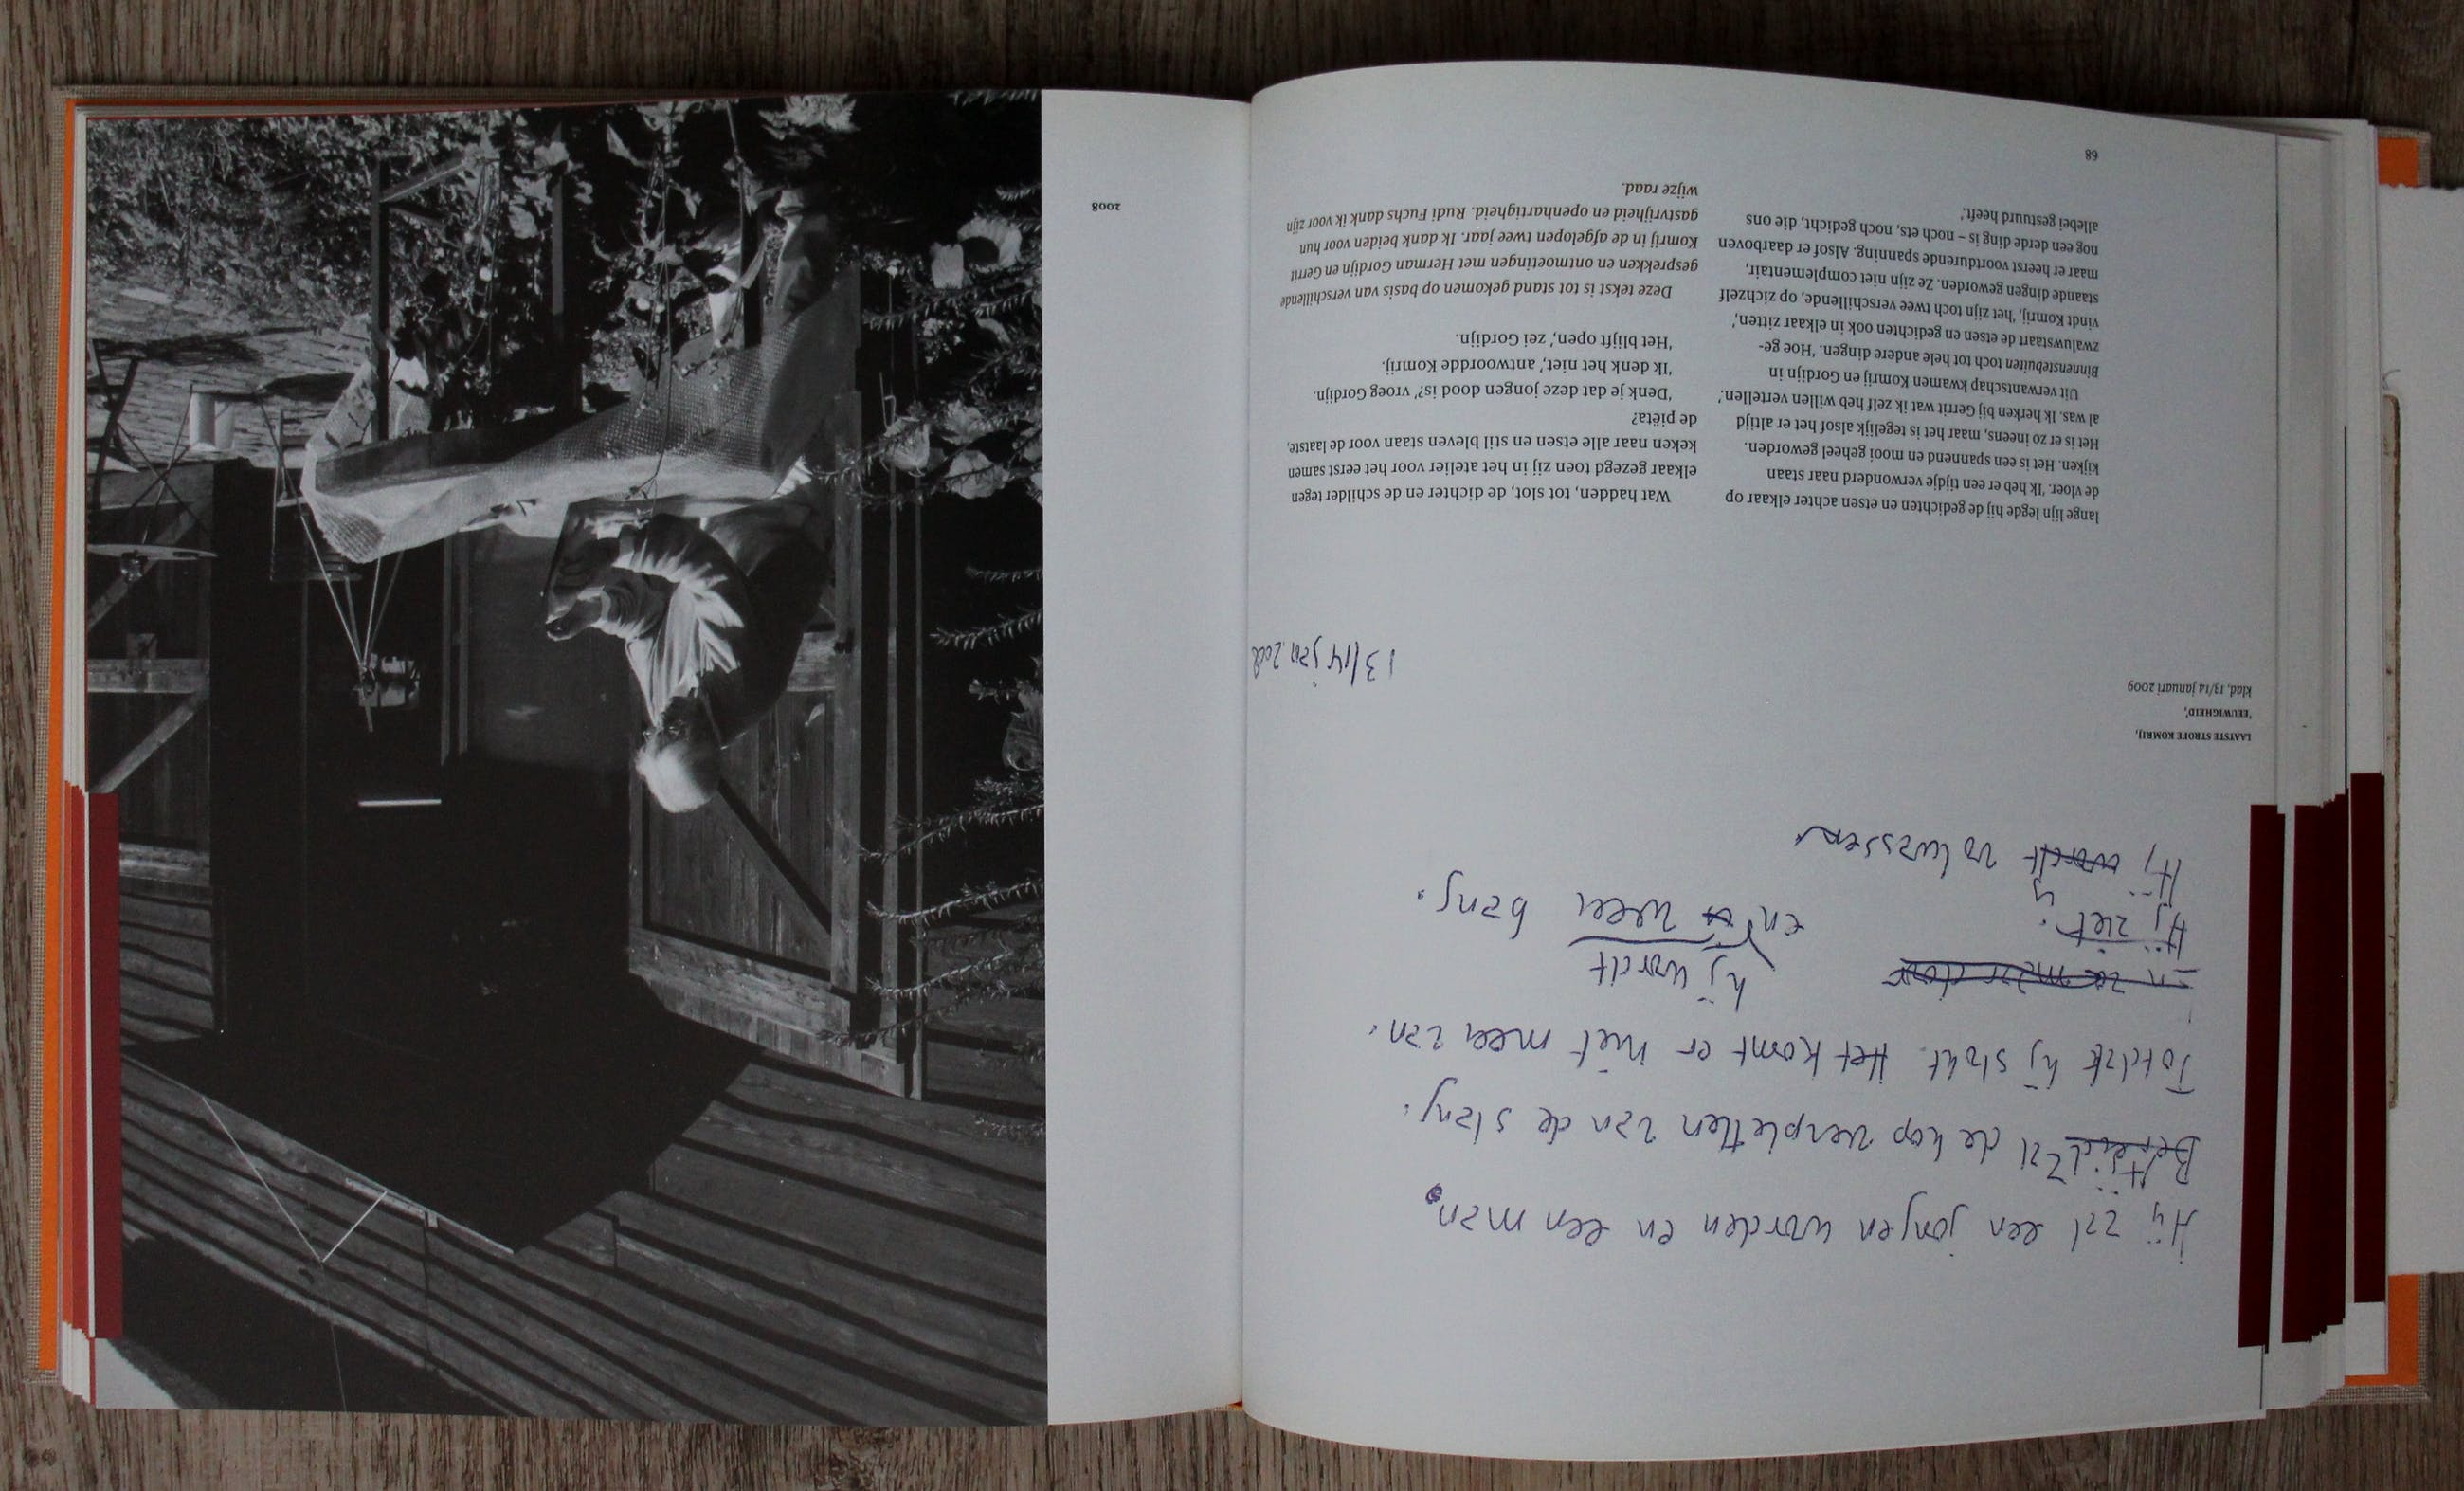 Hij zal een jongen worden en een man.
Bereid Altijd Zal de kop verpletten van de slang.
Totdat hij stokt. Het komt er niet meer van.
En zo maar door
hij wordt
Hij ziet. en weer bang.
Hij wordt volwassen
LAATSTE STROFE KOMRIJ,
'EEUWIGHEID',
Klad, 13/14 januari 2009
13/14 jan. 2009
lange lijn legde hij de gedichten en etsen achter elkaar op
de vloer. 'Ik heb er een tijdje verwonderd naar staan
kijken. Het is een spannend en mooi geheel geworden.
Het is er zo ineens, maar het is tegelijk alsof het er altijd
al was. Ik herken bij Gerrit wat ik zelf heb willen vertellen.'
Uit verwantschap kwamen Komrij en Gordijn in
Binnenstebuiten toch tot hele andere dingen. 'Hoe ge-
zwaluwstaart de etsen en gedichten ook in elkaar zitten,'
vindt Komrij, 'het zijn toch twee verschillende, op zichzelf
staande dingen geworden. Ze zijn niet complementair,
maar er heerst voortdurende spanning. Alsof er daarboven
nog een derde ding is – noch ets, noch gedicht, die ons
allebei gestuurd heeft.'
Wat hadden, tot slot, de dichter en de schilder tegen
elkaar gezegd toen zij in het atelier voor het eerst samen
keken naar alle etsen en stil bleven staan voor de laatste,
de piëta?
'Denk je dat deze jongen dood is?' vroeg Gordijn.
'Ik denk het niet,' antwoordde Komrij.
'Het blijft open,' zei Gordijn.
Deze tekst is tot stand gekomen op basis van verschillende
gesprekken en ontmoetingen met Herman Gordijn en Gerrit
Komrij in de afgelopen twee jaar. Ik dank beiden voor hun
gastvrijheid en openhartigheid. Rudi Fuchs dank ik voor zijn
wijze raad.
68
2008